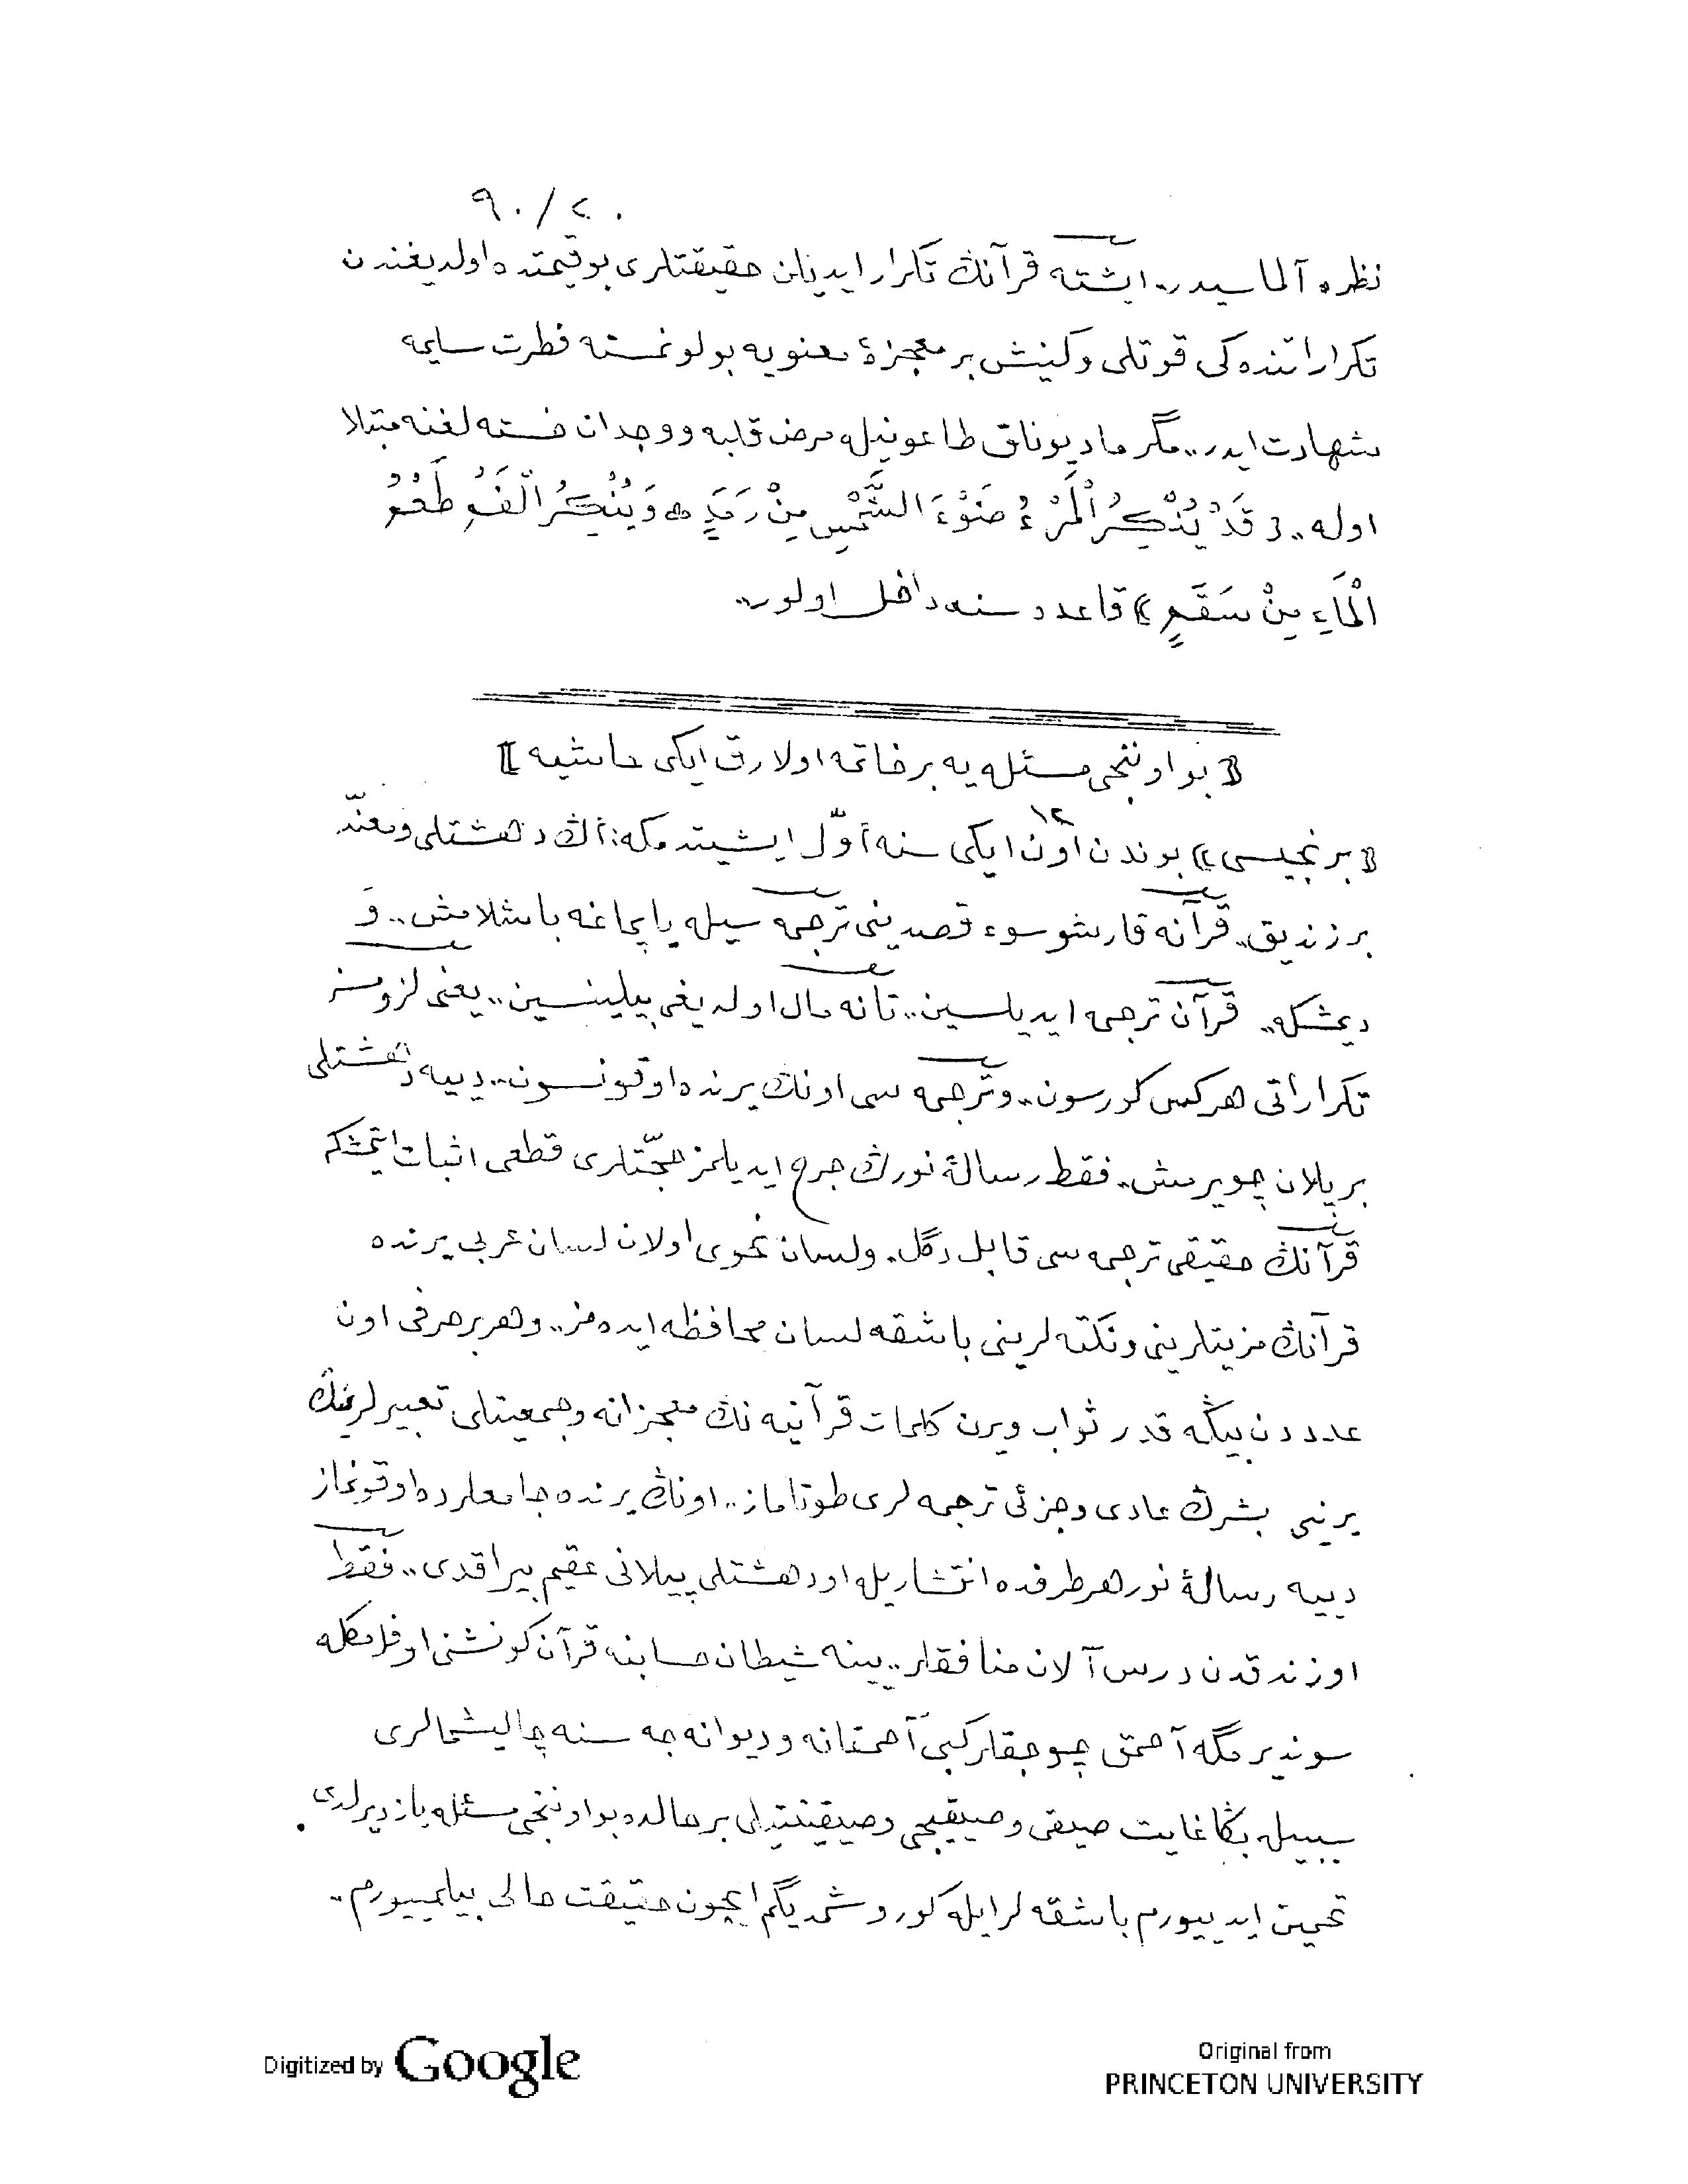 ٩٠/٢٠
نظره آلماسیدر.. ایشته قرآنڭ تکرار ایدیلن حقیقتلری بو قیمتده اولدیغندن
تکراراتنده کی قوتلی وکنیش بر معجزۀ معنویه بولونمسنه فطرت سلیمه
شهادت ایدر.. مگر مادیوناق طاعونیله مرض قلبه و وجدان خسته لغنه مبتلا
اوله.. ﴿ قَدْ يُنْكِرُ الْمَرْءُ ضَوْءَ الشَّمْسِ مِنْ رَمَدٍ ۞ وَيُنْكِرُ الْفَمُ طَعْمَ
الْمَاءِ مِنْ سَقَمٍ ﴾ قاعده سنه داخل اولور..
﴿ بو اوننجی مسئله یه بر خاتمه اولارق ایکی حاشیه ﴾
﴿ برنجیسی ﴾ بوندن اون ایکی ١٢ سنه أوّل ایشیتدمکه: أڭ دهشتلی ومعنّد
بر زندیق.. قرآنه قارشو سوء قصدینی ترجمه سیله یاپماغه باشلامش.. وَ
دیمشکه.. قرآن ترجمه ایدیلسین.. تا نه مال اولدیغی بیلینسین.. یعنی لزومسز
تکراراتی هرکس کورسون.. وترجمه سی اونڭ یرنده اوقونسون.. دییه دهشتلی
بر پلان چویرمش. فقط رسالۀ نورڭ جرح ایدیلمز حجّتلری قطعی اثبات ایتمشکه
قرآنڭ حقیقی ترجمه سی قابل دگل. ولسان نحوی اولان لسان عربی یرنده
قرآنڭ مزیتلرینی ونکته لرینی باشقه لسان محافظه ایده مز.. وهر بر حرفی اون
عدددن بیڭه قدر ثواب ویرن کلمات قرآنیه نڭ معجزانه وجمعیتلی تعبیرلرینڭ
یرینی بشرڭ عادی وجزئی ترجمه لری طوتاماز.. اونڭ یرنده جامعلرده اوقونماز
دییه رسالۀ نور هر طرفده انتشاریله او دهشتلی پیلانی عقیم بیراقدی.. فقط
او زندقدن درس آلان منافقلر.. یینه شیطان حسابنه قرآن کونشنی اوفلمکله
سوندیرمگه آحمق چوجقلر کبی آحمقانه ودیوانه جه سنه چالیشمالری
سببیله بڭا غایت صیقی وصیقیجی وصیقینتیلی بر حالده بو اوننجی مسئله یازدیرلدی.
تخمین ایدییورم باشقه لر ایله کوروشمدیگم ایچون حقیقت حالی بیلمییورم..
Digitized by Google
Original from
PRINCETON UNIVERSITY